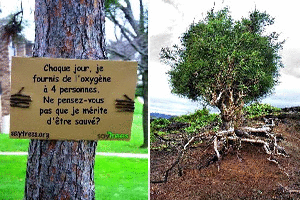 Chaque jour, je
fournis de l'oxygène
à 4 personnes.
Ne pensez-vous
pas que je mérite
d'être sauvé?
saytrees.org